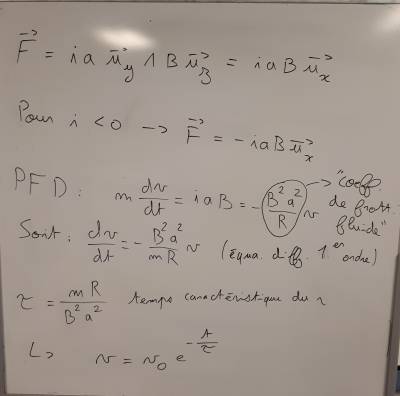 F⃗ = i a u⃗y ∧ B u⃗z = i a B u⃗x
Pour i < 0 → F⃗ = - i a B u⃗x
PFD : m dv/dt = i a B = - B²a²/R v → "coeff. de frott. fluide"
Soit : dv/dt = - B²a²/mR v (équa. diff. 1er ordre)
τ = mR/B²a² temps caractéristique du
↳ v = v₀ e^(-t/τ)